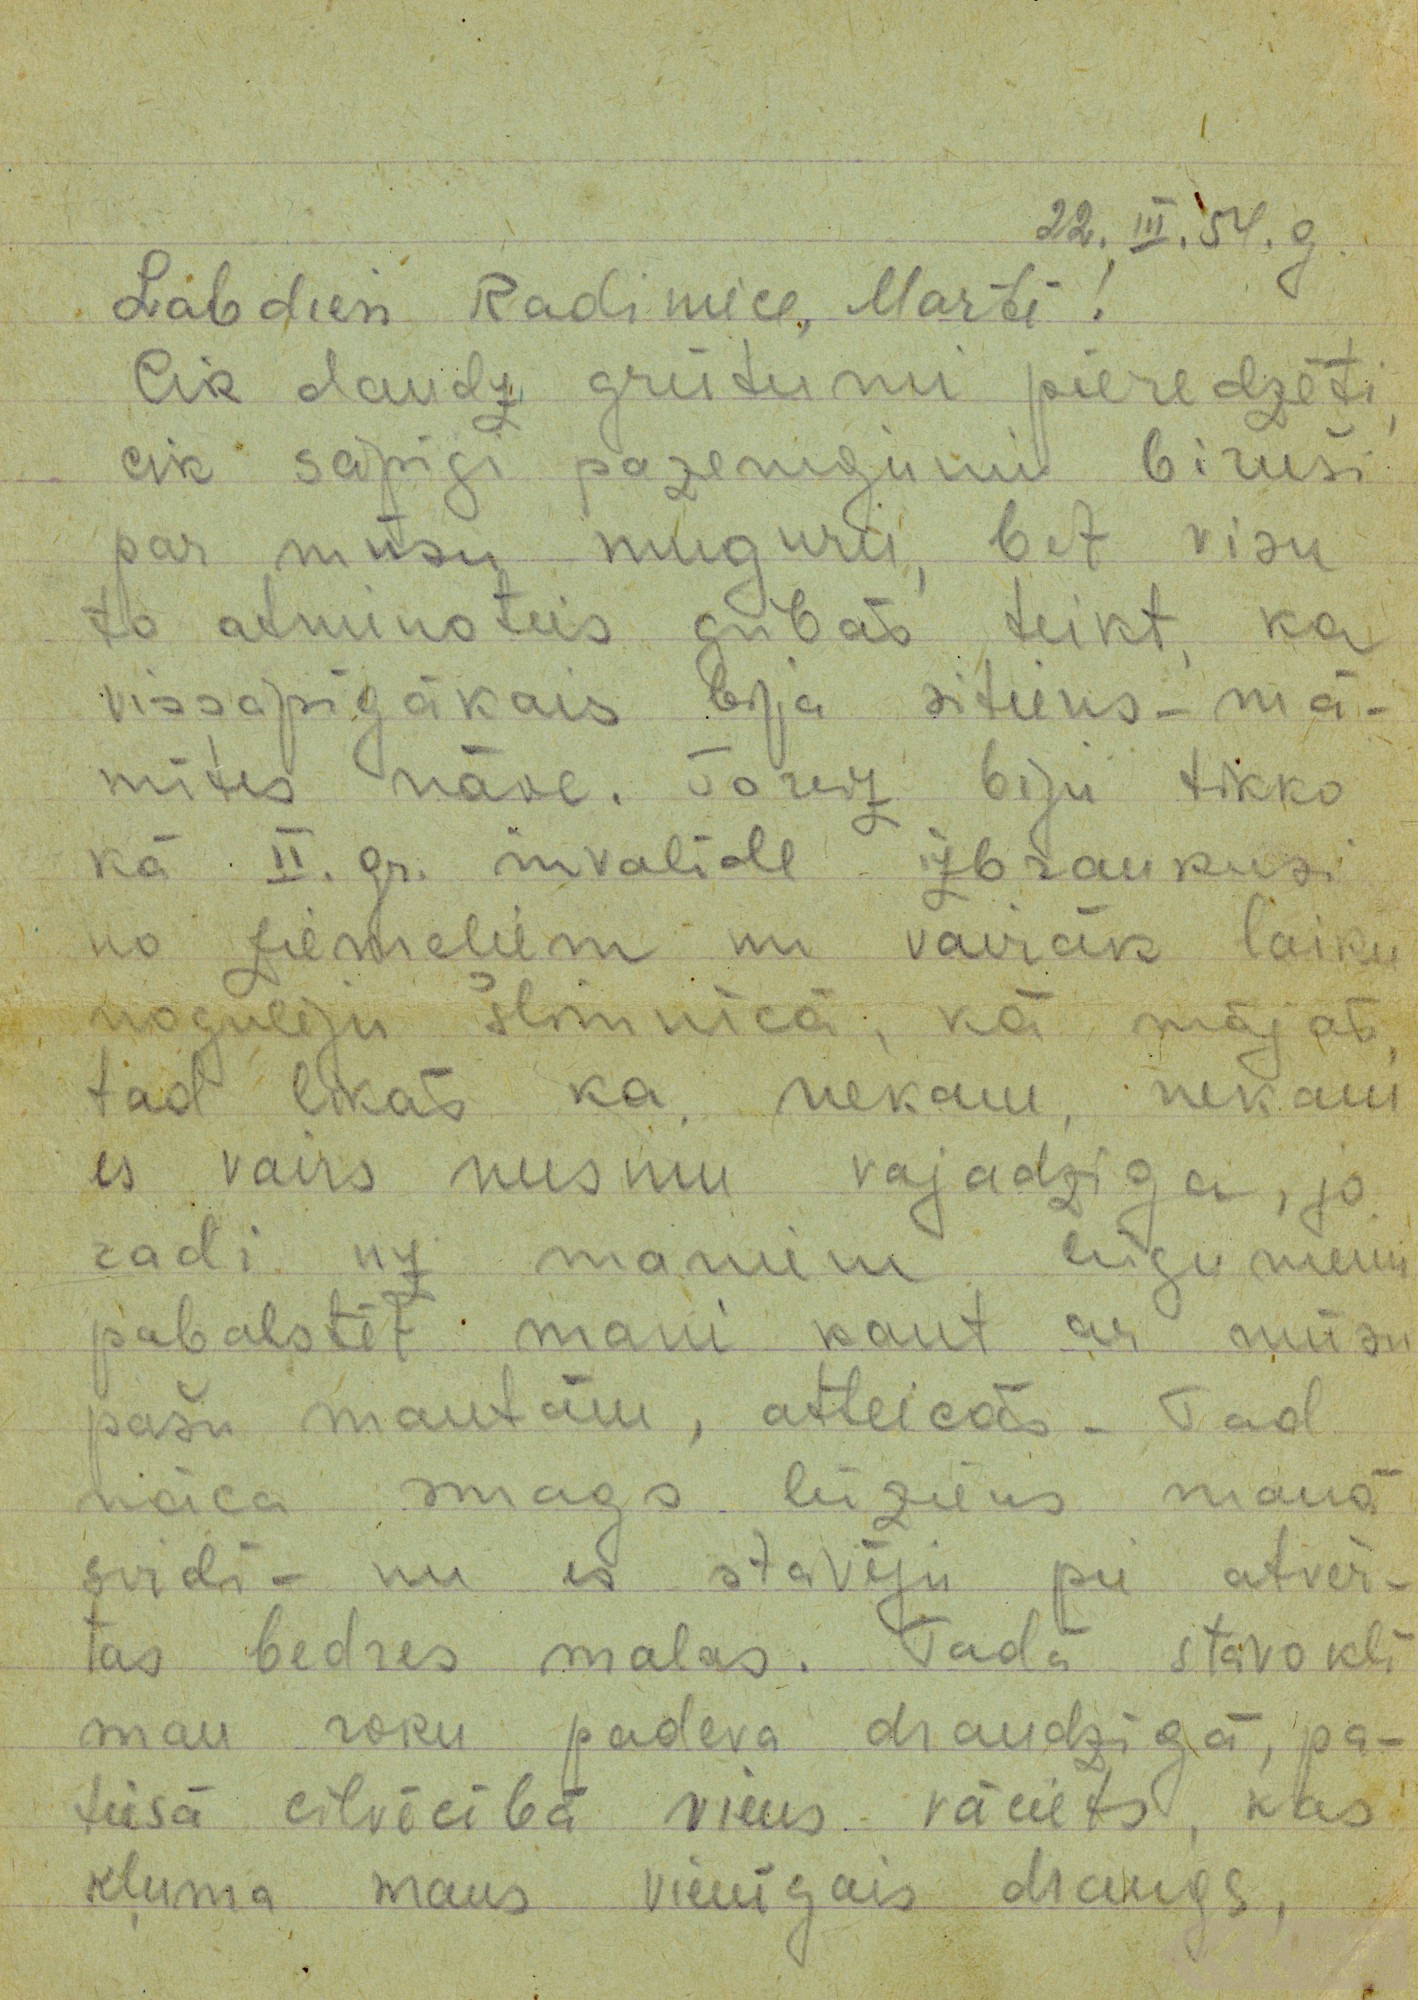 22. III. 54. g.
Labdien Radiniece, Marti!
Cik daudz grūtumu pieredzēti,
cik sāpīgi pazemigumi biruši
par mūsu muguru, bet visu
to atminoties gribās teikt, ka
vissāpīgākais bija sitiens - mā-
mītes nāve. Toreiz biju tikko
kā II. gr. invalīde izbraukusi
no ziemeļiem un vairāk laiku
nogulēju slimnīcā, kā mājās,
tad likās ka nekam, nekam
es vairs neesmu vajadzīga, jo
radi uz maniem lūgumiem
pabalstēt mani kaut ar mūsu
pašu mantām, atteicās - Tad
nāca smags lūziens manā
sirdī - nu es stāvēju pie atvēr-
tas bedres malas. Tādā stāvoklī
man roku padeva draudzīgā, pa-
tiesā cilvēcībā viens vācietis, kas
kļuma mans vienīgais draugs,